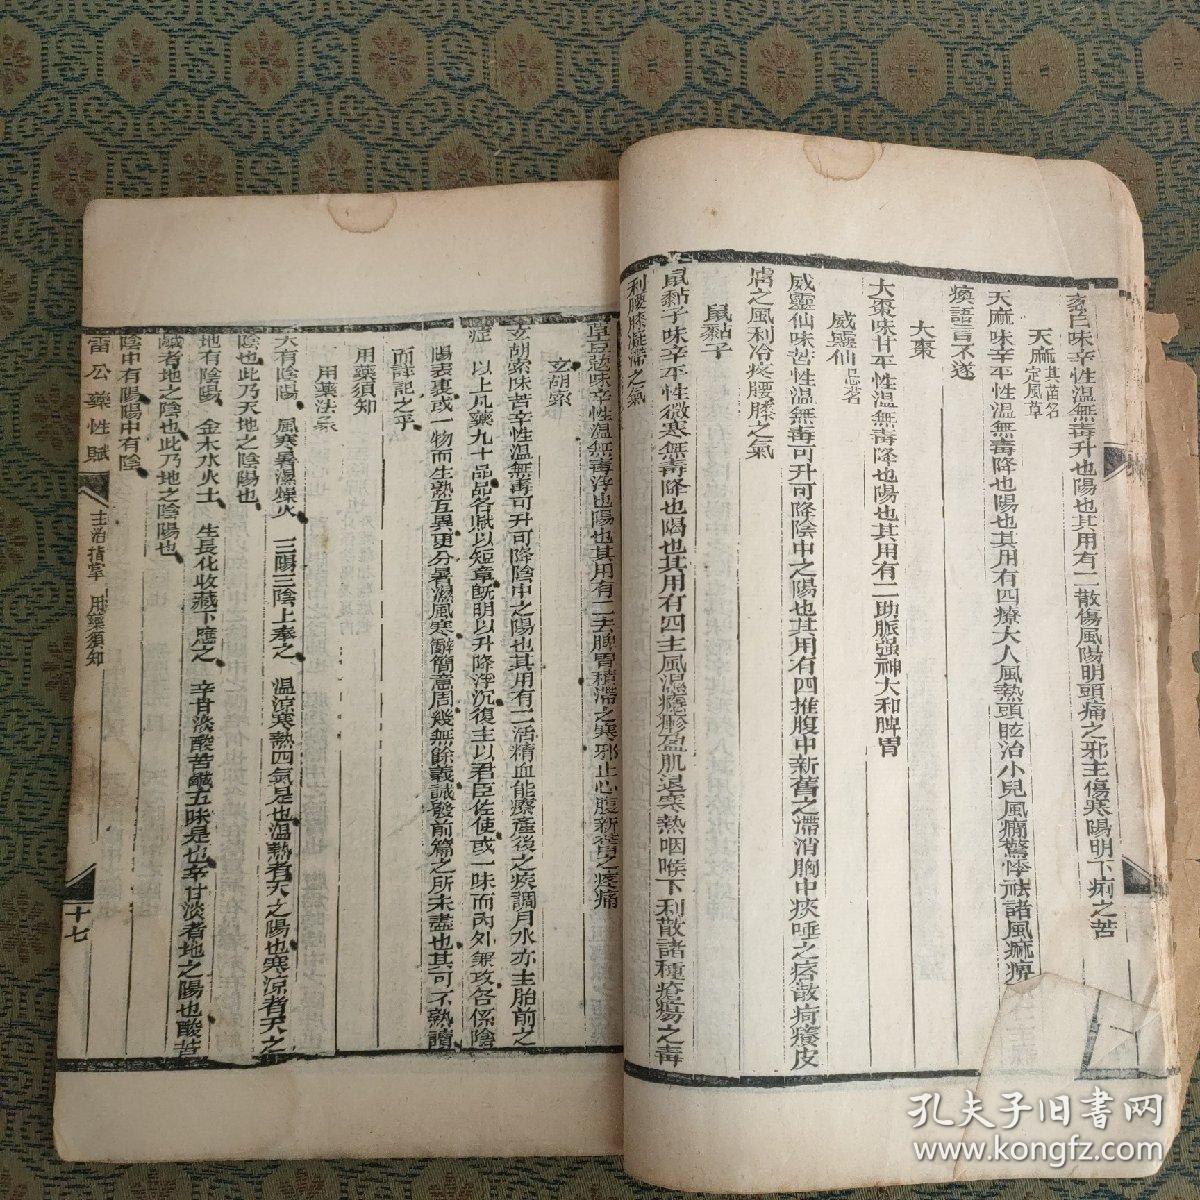 葛臣味辛性溫無毒升也陽也其用有二散傷風陽明頭痛之邪主傷寒陽明下痢之苦
天麻其苗名定風草
天麻味辛平性溫無毒降也陽也其用有四療大人風熱頭眩治小兒風癇驚悸祛諸風麻痹
瘓語言不遂
大棗
大棗味甘平性溫無毒降也陽也其用有二助脈強神大和脾胃
威靈仙忌茗
威靈仙味苦性溫無毒可升可降陰中之陽也其用有四推腹中新舊之滯消胸中痰唾之痞散疴癢皮
膚之風利冷疼腰膝之氣
鼠黏子
鼠黏子味辛平性微寒無毒降也陽也其用有四主風濕癮疹盈肌退寒熱咽喉下利散諸種瘡瘍之毒
利腰膝凝滯之氣
味辛性溫無毒浮也陽也其用有二去脾胃積滯之寒邪止心腹新舊之疼痛
玄胡索
玄胡索味苦辛性溫無毒可升可降陰中之陽也其用有二活精血能療產後之疾調月水亦主胎前之
症 以上凡藥九十品品名賦以短章旣明以升降浮沉復主以君臣佐使或一味而內外兼攻各係陰
陽表裏或一物而生熟互異更分暑濕風寒辭簡意周幾無餘義誠發前篇之所未盡也其可不熟讀
而詳記之乎
用藥須知
用藥法象
天有陰陽 風寒暑濕燥火 三陽三陰上奉之 溫涼寒熱四氣是也溫熱者天之陽也寒涼者天之
陰也此乃天地之陰陽也
地有陰陽 金木水火土 生長化收藏下應之 辛甘淡酸苦鹹五味是也辛甘淡者地之陽也酸苦
鹹者地之陰也此乃地之陰陽也
陰中有陽陽中有陰
雷公藥性賦 主治指掌 用藥須知 十七
孔夫子旧書网
www.kongfz.com